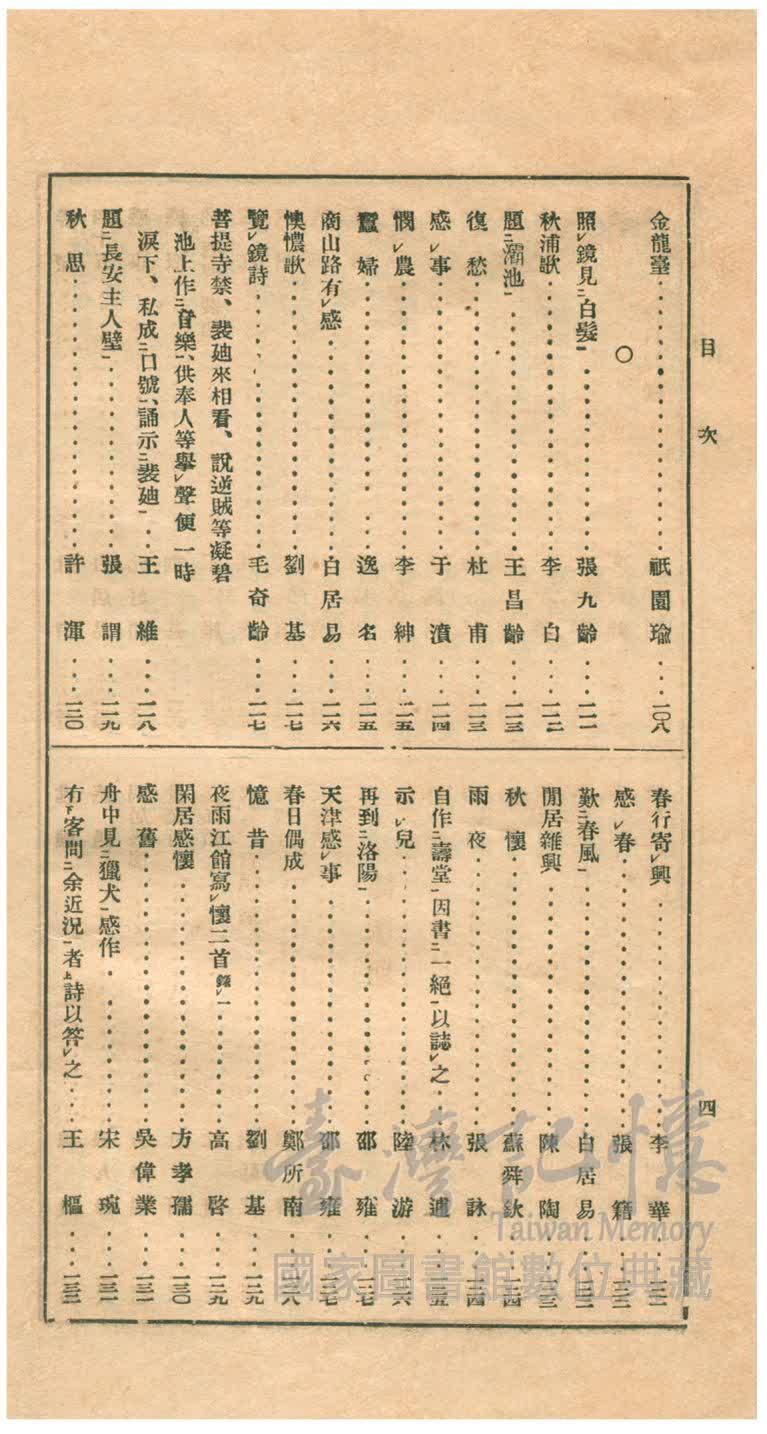 目次
四
金龍臺……………祇園瑜……一〇八
〇
照レ鏡見二白髮一……………張九齡……一一一
秋浦歌……………李白……一一二
題二灞池一……………王昌齡……一一三
復愁……………杜甫……一一三
感レ事……………于濆……一一四
憫レ農……………李紳……一一五
蠶婦……………逸名……一一五
商山路有レ感……………白居易……一一六
懊憹歌……………劉基……一一七
覽レ鏡詩……………毛奇齡……一一七
菩提寺禁、裴廸來相看、說逆賊等凝碧
池上作二音樂一、供奉人等擧レ聲便一時
淚下、私成二口號一、誦示二裴廸一……王維……一一八
題二長安主人壁一……………張謂……一一九
秋思……………許渾……一二〇
春行寄レ興……………李華……一二一
感レ春……………張籍……一二二
歎二春風一……………白居易……一二二
閒居雜興……………陳陶……一二三
秋懷……………蘇舜欽……一二四
雨夜……………張詠……一二四
自作二壽堂一因書二一絕一以誌レ之……林逋……一二五
示レ兒……………陸游……一二六
再到二洛陽一……………邵雍……一二七
天津感レ事……………邵雍……一二七
春日偶成……………鄭所南……一二八
憶昔……………劉基……一二九
夜雨江館寫レ懷二首錄レ一……………高啓……一二九
閑居感懷……………方孝孺……一三〇
感舊……………吳偉業……一三一
舟中見二獵犬一感作……………宋琬……一三一
有下客問二余近況一者上詩以答レ之……王樞……一三二
臺灣記憶
Taiwan Memory
國家圖書館數位典藏